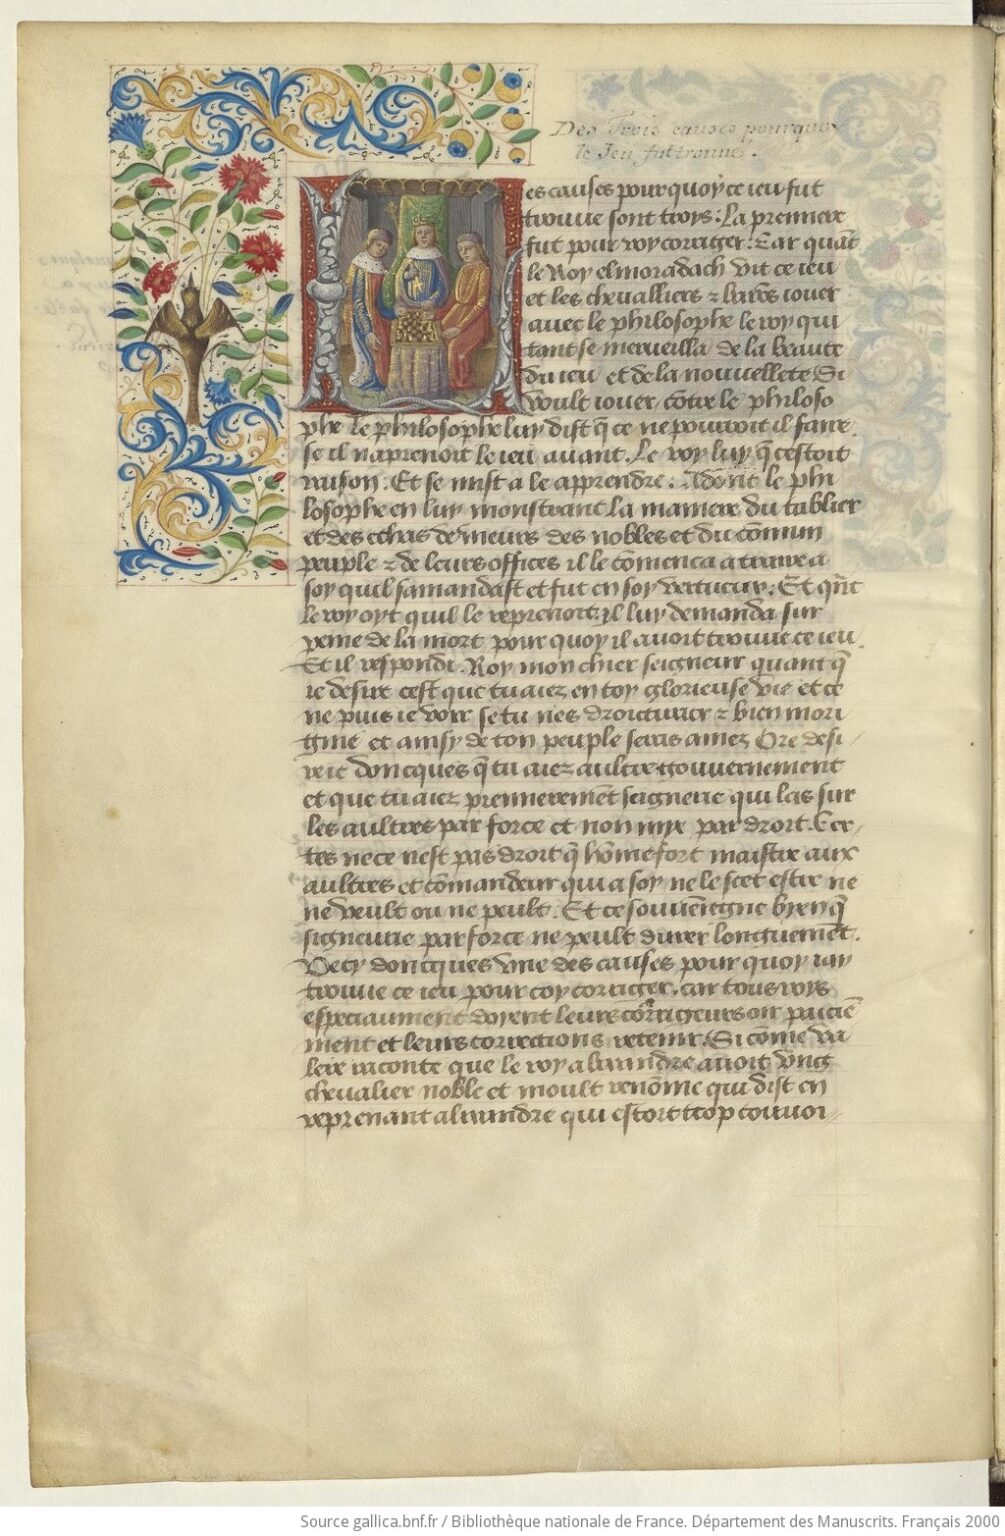 Des Trois causes pourquoy
le Jeu fut trouué.
Les causes pour quoy ce ieu fut
trouue sont troys: La premiere
fut pour roy corriger: Car quāt
le Roy elmoradach vit ce ieu
et les chevalliers z barōs iouer
auec le philosophe le roy qui
tant se merueilla de la beaute
du ieu et de la nouuellete Si
voult iouer cōtre le philoso
phe le philosophe luy dist q̄ ce ne pourroit il faire
se il naprenoit le ieu auant. Le roy luy q̄ cestoit
raison. Et se mist a le apprendre. Adont le phi
losophe en luy monstrant la maniere du tablier
et des echas de meurs des nobles et du cōmun
peuple z de leurs offices il le cōmenca a traire a
soy quil samandast et fut en soy vertueux. Et qn̄t
le roy oyt quil le reprenoit. il luy demanda sur
peine de la mort pour quoy il auoit trouue ce ieu
Et il respondi. Roy mon chier seigneur quant q̄
ie desire cest que tu aiez en toy glorieuse vie et ce
ne puis ie voir se tu nes droicturier z bien mori
gine et ainsy de ton peuple seras amez Ore desi
re ie doncques q̄ tu aiez aultre gouuernement
et que tu aiez premieremēt seignerie qui las sur
les aultres par force et non mye par droit. Cer-
tes ne ce nest pas droit q̄ hōme fort maistre aux
aultres et cōmandeur qui a soy ne le scet estre ne
ne veult ou ne peult. Et ce souuiengne byen q̄
signeurie par force ne peult durer longuemēt.
Vecy doncques vne des causes pour quoy iay
trouue ce ieu pour toy corriger. car tous roys
especiaument doyent leurs corrigeurs oir paciē
ment et leurs corrections retenir. Si cōme va
lere raconte que le roy alixandre auoit vng
chevalier noble et moult renōme qui dist en
reprenant alixandre qui estoit trop couuoi
Source gallica.bnf.fr / Bibliothèque nationale de France. Département des Manuscrits. Français 2000